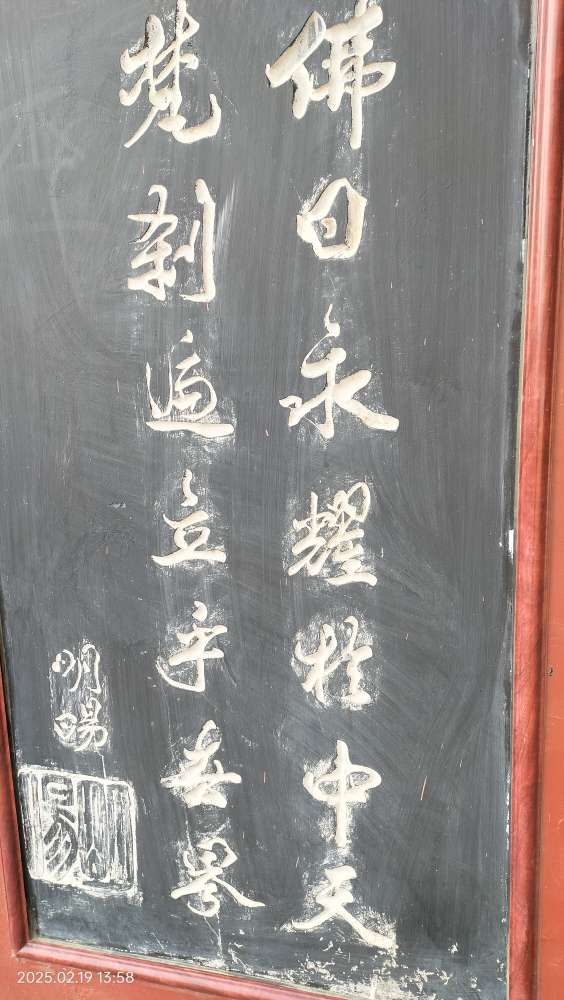 佛日永耀扵中天
梵刹遍立乎世界
明暘
2025.02.19 13:58